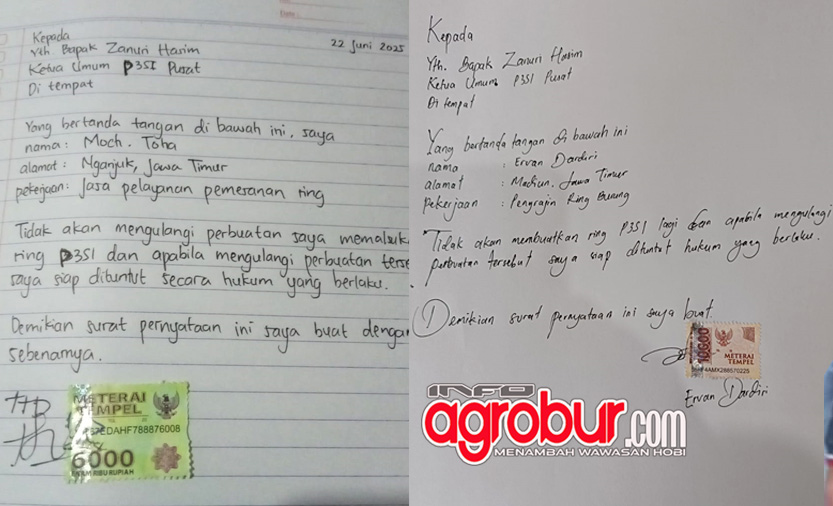 Kepada
22 Juni 2025
Yth Bapak Zanuri Hasim
Ketua Umum P3SI Pusat
Di tempat
Yang bertanda tangan di bawah ini, saya
nama: Moch. Toha
alamat: Nganjuk, Jawa Timur
pekerjaan: Jasa pelayanan pemesanan ring
Tidak akan mengulangi perbuatan saya memalsuk
ring P3SI dan apabila mengulangi perbuatan terse
saya siap dituntut secara hukum yang berlaku.
Demikian surat pernyataan ini saya buat dengan
sebenarnya.
TTD
METERAI
TEMPEL
EDAHF788876008
6000
ENAM RIBU RUPIAH
Kepada
Yth. Bapak Zanuri Hasim
Ketua Umum P3SI Pusat
Di tempat
Yang bertanda tangan di bawah ini
nama : Ervan Dardiri
alamat : Madiun, Jawa Timur
pekerjaan : Pengrajin Ring Burung
Tidak akan membuatkan ring P3SI lagi dan apabila mengulangi
perbuatan tersebut saya siap dituntut hukum yang berlaku.
Demikian surat pernyataan ini saya buat.
10000
METERAI
TEMPEL
4AMX288570225
Ervan Dardiri
INFO
agrobur.com
MENAMBAH WAWASAN HOBI